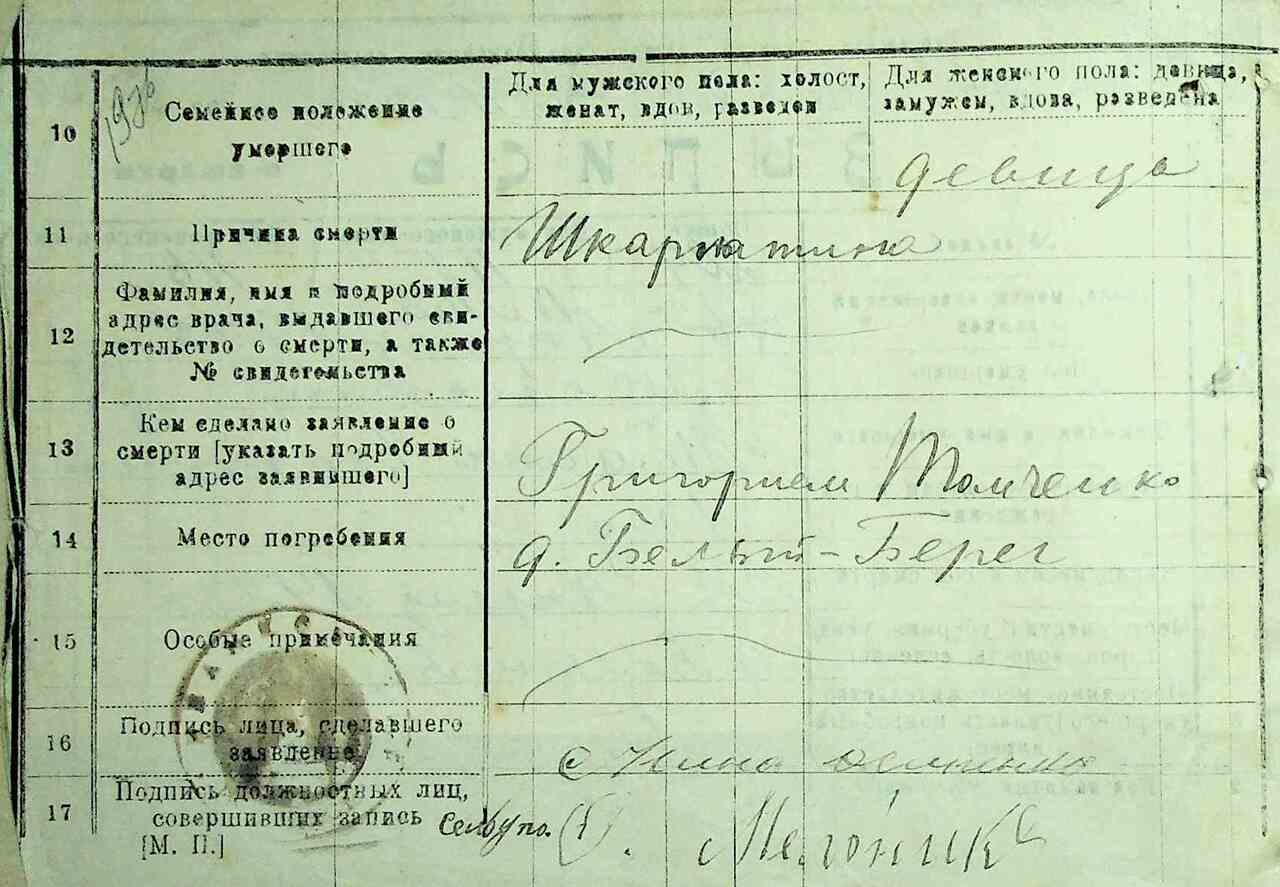 10
Семейное положение
умершего
Для мужского пола: холост,
женат, вдов, разведен
Для женского пола: девица,
замужем, вдова, разведена
девица
11
Причина смерти
Шкарлатина
12
Фамилия, имя и подробный
адрес врача, выдавшего сви-
детельство о смерти, а также
№ свидетельства
13
Кем сделано заявление о
смерти [указать подробный
адрес заявившего]
Григорием
14
Место погребения
д. Белый-Берег
15
Особые примечания
16
Подпись лица, сделавшего
заявление
17
Подпись должностных лиц,
совершивших запись
[М. П.]